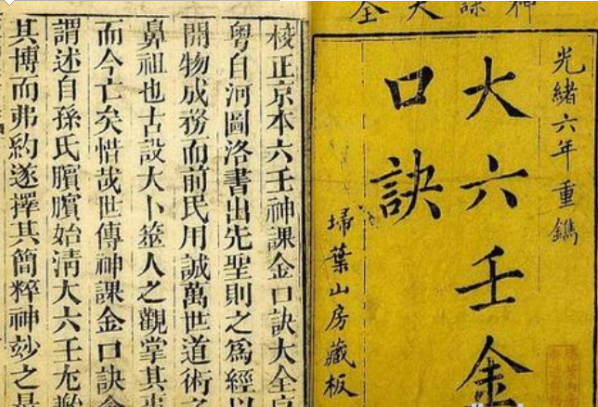 神課大全
光緒六年重鐫
大六壬金
口訣
埽葉山房藏板
校正京本六壬神課金口訣大全
粵自河圖洛書出先聖則之爲經以
開物成務而前民用誠萬世道術之
鼻祖也古設大卜筮人之觀掌其事
而今亡矣惜哉世傳神課金口訣
謂述自孫氏臏臏始清大六壬尤
其博而弗約遂擇其簡粹神妙之